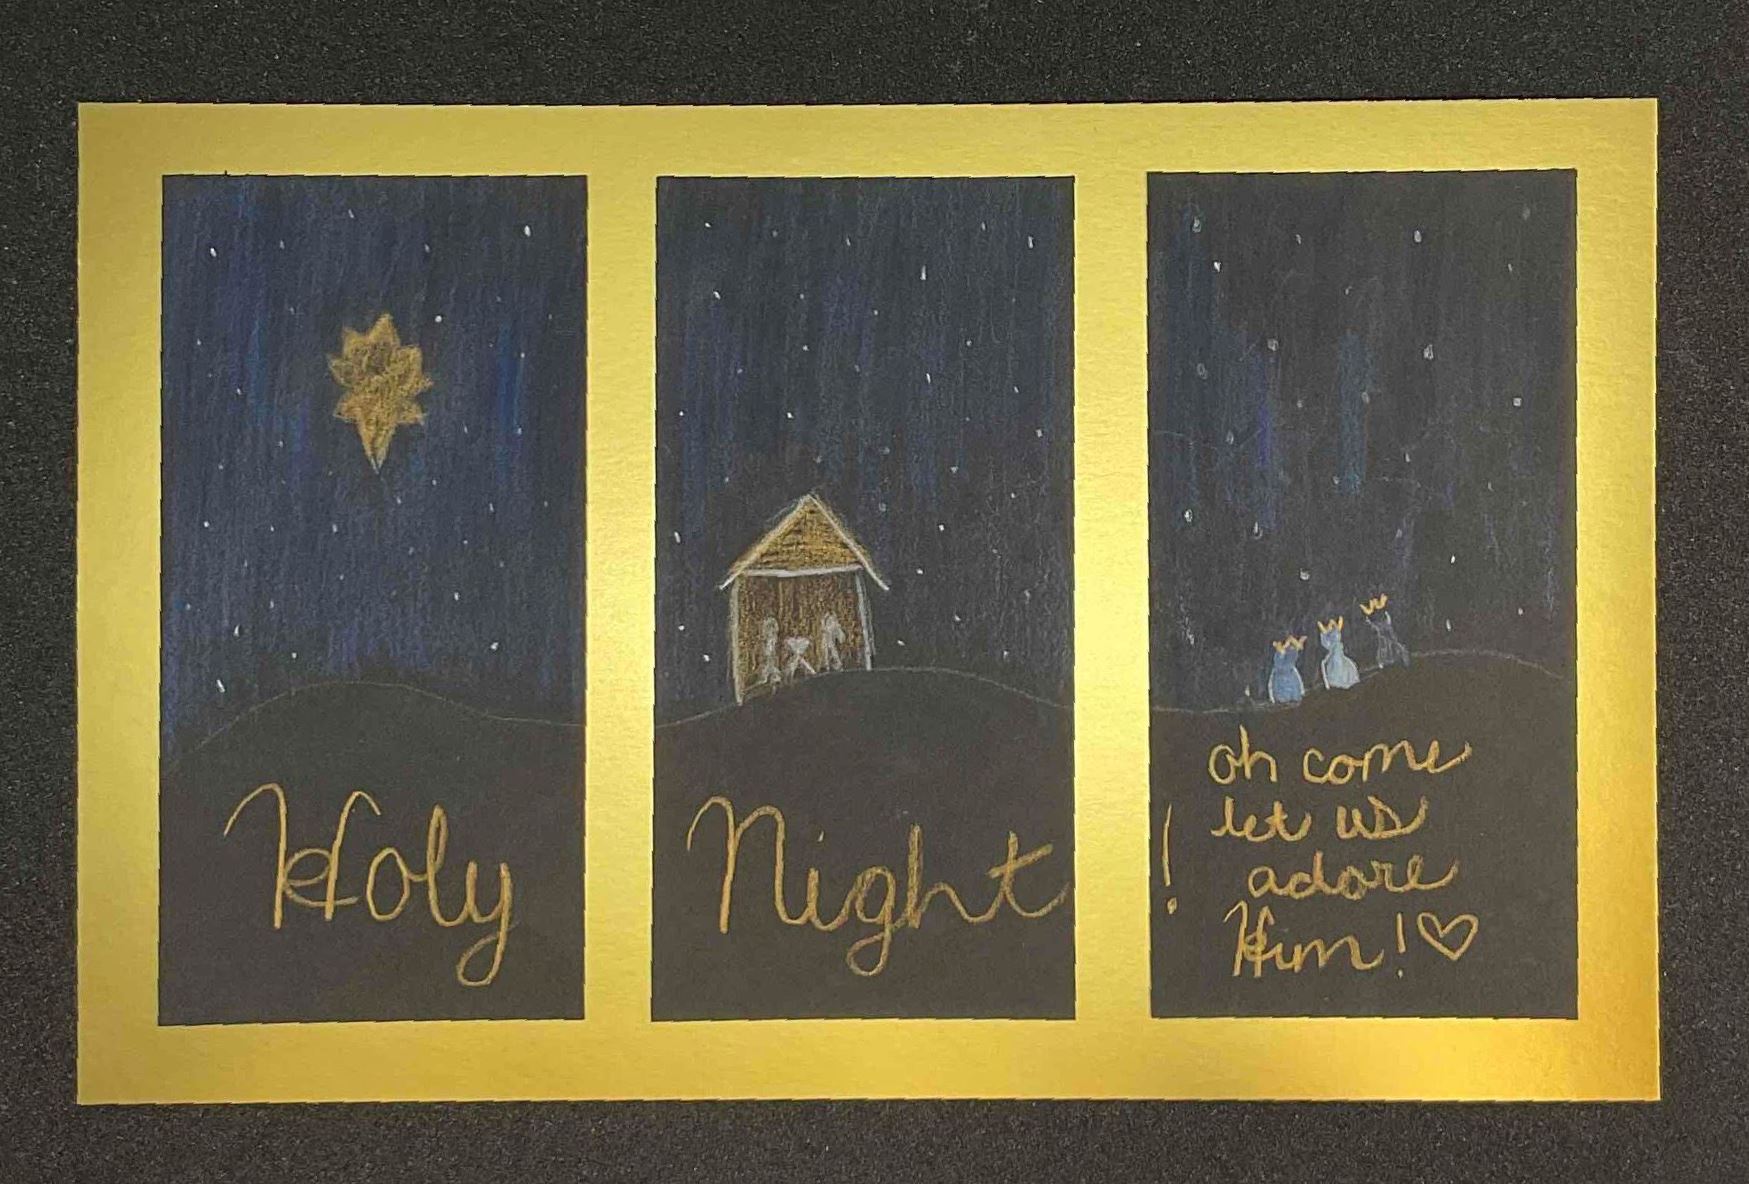 Holy
Night
!
oh come
let us
adore
Him!♡